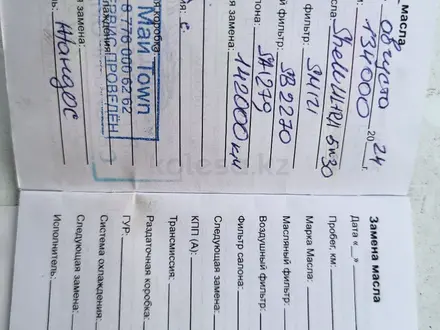 масла
августа 20 24 г.
134000
масла: Shell ULTRA 5w30
фильтр: SM121
й фильтр: JB2270
салона: SA1279
замена: 142000 км
ия: с
я коробка
Май Town
8 776 000 62 62
СЕРВИС ПРОВЕДЕН
хлаждения
я замена:
ль: Жандос
kolesa.kz
Замена масла
Дата «__» ______ 20__ г.
Пробег, км:
Марка Масла:
Масляный фильтр:
Воздушный фильтр:
Фильтр салона:
Следующая замена:
КПП (А):
Трансмиссия:
Раздаточная коробка:
ГУР:
Система охлаждения:
Следующая замена:
Исполнитель: